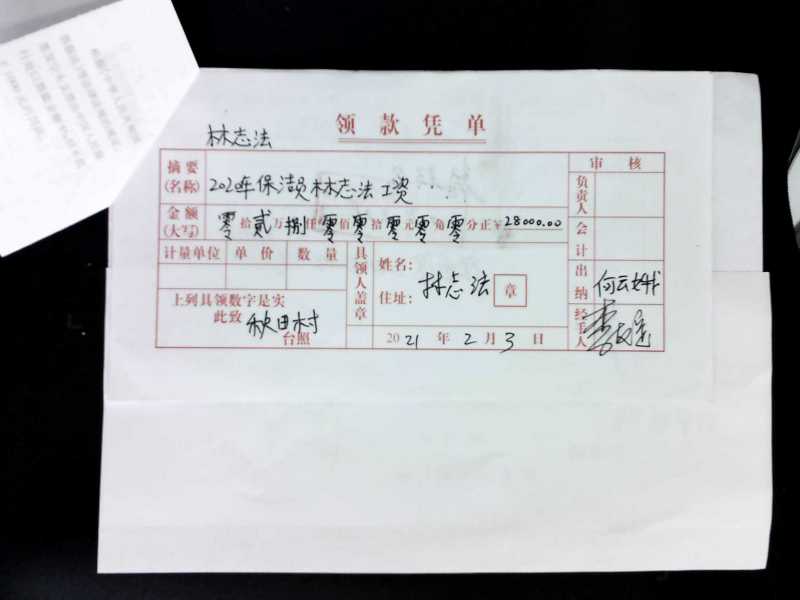 领款凭单
林志法
摘要(名称) 2020年保洁员林志法工资
审核
负责人
金额(大写) 零拾贰万捌仟零佰零拾零元零角零分正¥28000.00
会计
计量单位 单价 数量
具领人盖章
姓名:
住址:
林志法
章
出纳 何云娥
上列具领数字是实
此致 秋田村
台照
2021年2月3日
经手人